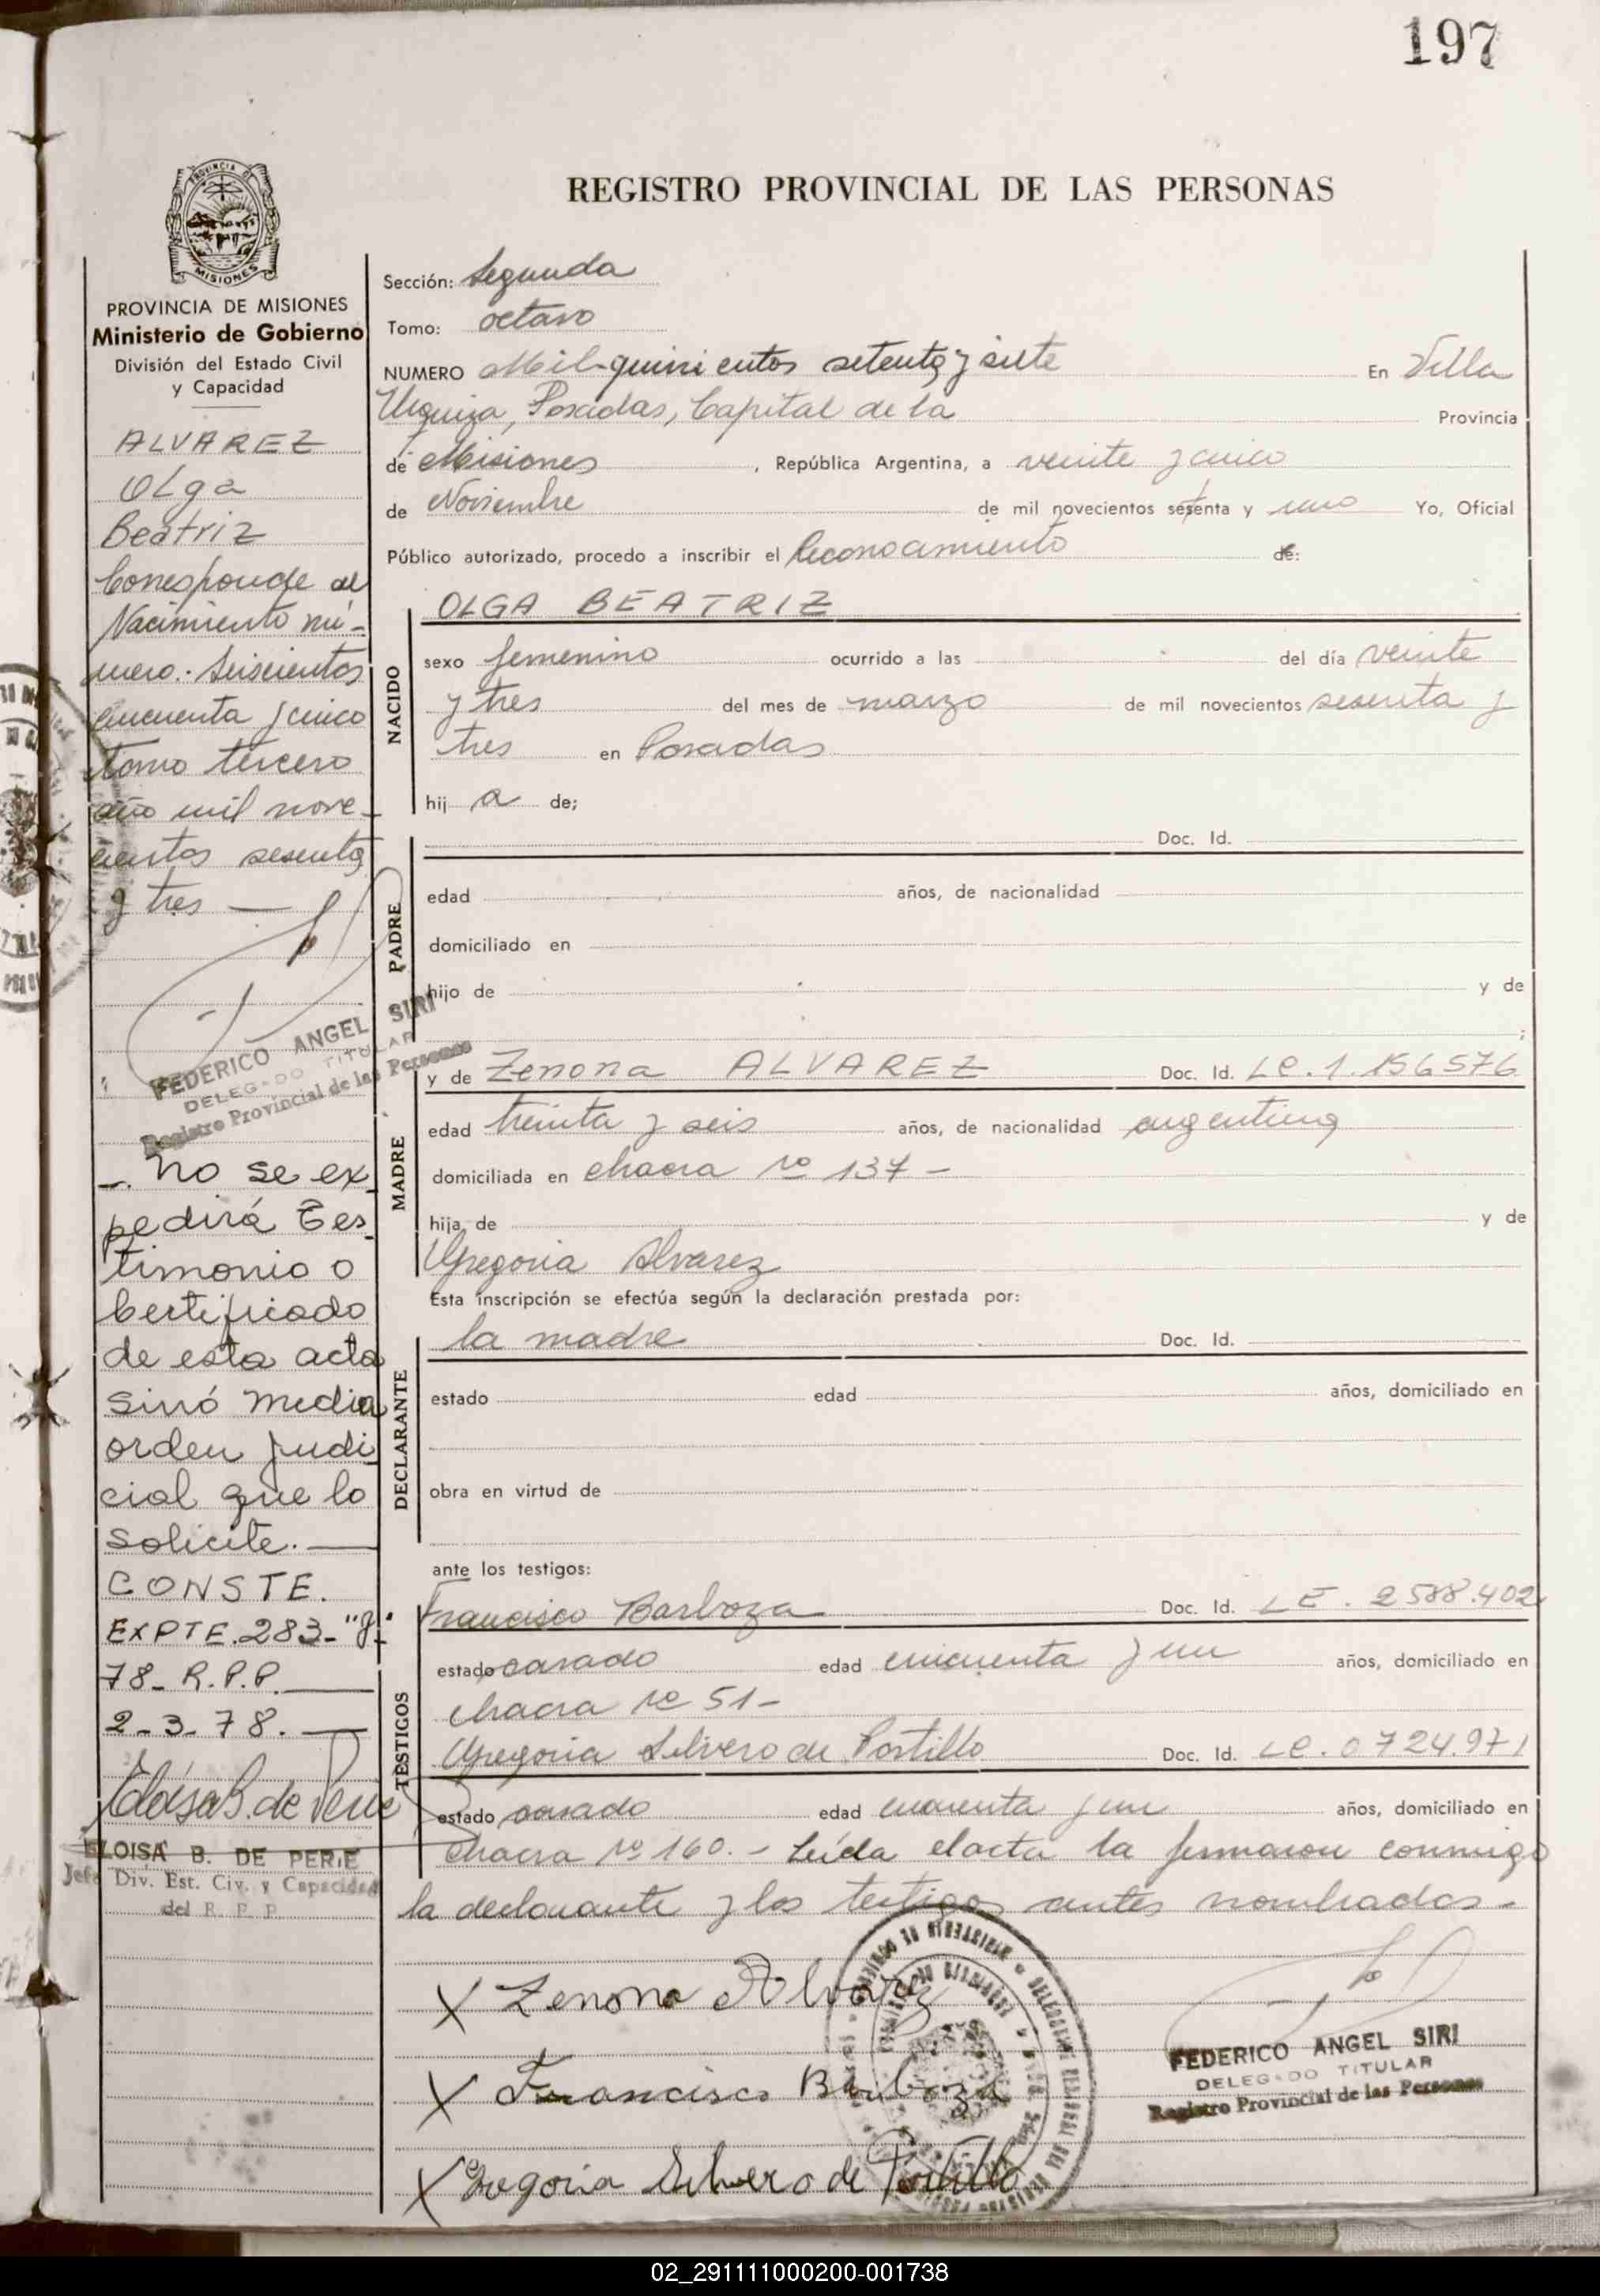 197
PROVINCIA DE
MISIONES
REGISTRO PROVINCIAL DE LAS PERSONAS
PROVINCIA DE MISIONES
Ministerio de Gobierno
División del Estado Civil
y Capacidad
ALVAREZ
Olga
Beatriz
Corresponde al
Nacimiento nú-
mero.- Seiscientos
cincuenta y cinco
tomo tercero
año mil nove-
cientos sesenta
y tres —
FEDERICO ANGEL SIRI
DELEGADO TITULAR
Registro Provincial de las Personas
-. No se ex
pedirá Tes-
timonio o
Certificado
de esta acta
sinó media
orden judi
cial que lo
solicite. —
CONSTE.
EXPTE. 283-"J"-
78- R.P.P. —
2-3-78. —
Eloisa B. de Perie
ELOISA B. DE PERIE
Jefe Div. Est. Civ. y Capacidad
del R. P. P.
Sección: Segunda
Tomo: octavo
NUMERO Mil quinientos setenta y siete En Villa
Urquiza, Posadas, Capital de la Provincia
de Misiones , República Argentina, a veinte y cinco
de Noviembre de mil novecientos setenta y uno Yo, Oficial
Público autorizado, procedo a inscribir el Reconocimiento de:
NACIDO
OLGA BEATRIZ
sexo femenino ocurrido a las del día veinte
y tres del mes de marzo de mil novecientos sesenta y
tres en Posadas
hij a de;
PADRE
Doc. Id.
edad años, de nacionalidad
domiciliado en
hijo de y de
;
MADRE
y de Zenona ALVAREZ Doc. Id. LC. 1.156576
edad treinta y seis años, de nacionalidad argentina
domiciliada en chacra no 137 -
hija de y de
Gregoria Alvarez
Esta inscripción se efectúa según la declaración prestada por:
DECLARANTE
la madre Doc. Id.
estado edad años, domiciliado en
obra en virtud de
ante los testigos:
TESTIGOS
Francisco Barboza Doc. Id. LE. 2588.402
estado casado edad cincuenta y un años, domiciliado en
chacra no 51-
Gregoria Silvero de Portillo Doc. Id. LC. 0724.971
estado casado edad cuarenta y un años, domiciliado en
chacra no 160. - Leída el acta la firmaron conmigo
la declarante y los testigos antes nombrados -
X Zenona Alvarez
X Francisco Barboza
X Gregoria Silvero de Portillo
FEDERICO ANGEL SIRI
DELEGADO TITULAR
Registro Provincial de las Personas
02_291111000200-001738